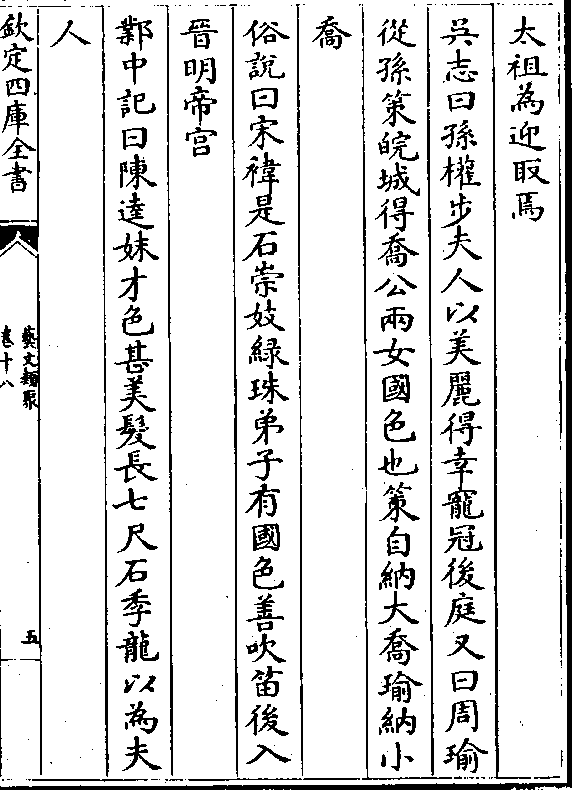 太祖為迎取焉
吳志曰孫權步夫人以美麗得幸寵冠後庭又曰周瑜
從孫策皖城得喬公兩女國色也策自納大喬瑜納小
喬
俗說曰宋褘是石崇妓緑珠弟子有國色善吹笛後入
晉明帝宫
鄴中記曰陳逵妹才色甚美髮長七尺石季龍以為夫
人
欽定四庫全書
藝文類聚
卷十八
五